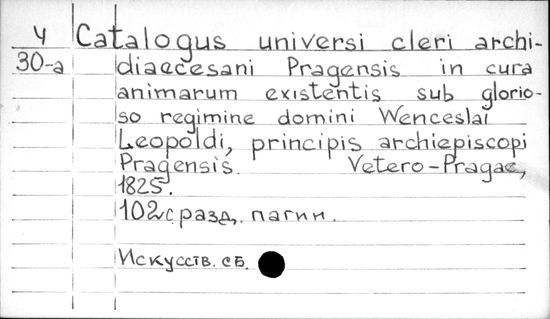 Ч Catalogus universi cleri archi-
30-а diaecesani Pragensis in cura
animarum existentis sub glorio-
so regimine domini Wenceslai
Leopoldi, principis archiepiscopi
Pragensis. Vetero-Pragae,
1825.
102с разд. пагин.
Искусств. сб.